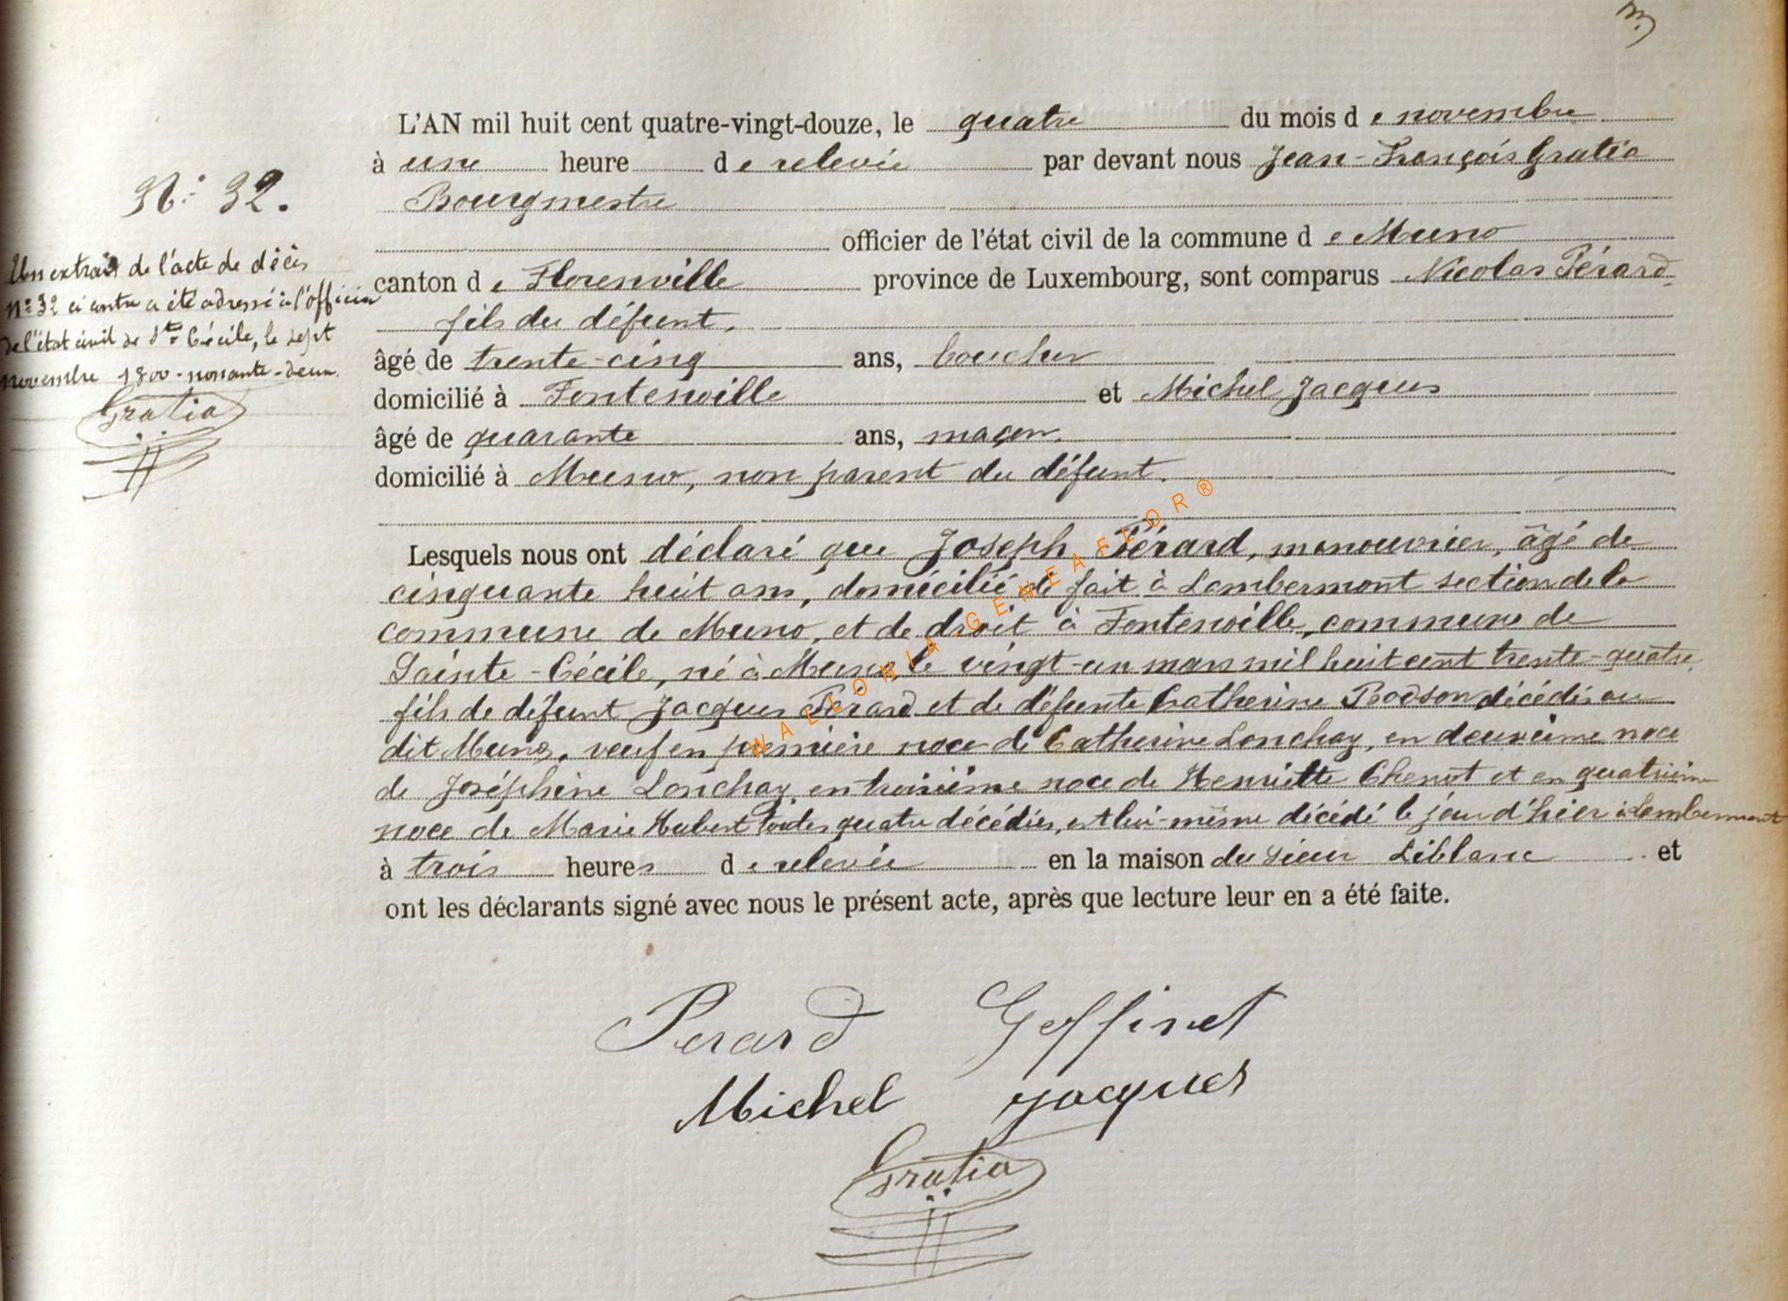 L'AN mil huit cent quatre-vingt-douze, le quatre du mois de novembre
à une heure de relevée par devant nous Jean-François Gratia
Bourgmestre
officier de l'état civil de la commune de Muno
canton de Florenville province de Luxembourg, sont comparus Nicolas Pérard
fils du défunt,
âgé de trente-cinq ans, boucher
domicilié à Fontenoille et Michel Jacques
âgé de quarante ans, maçon,
domicilié à Muno, non parent du défunt.
Lesquels nous ont déclaré que Joseph Pérard, manouvrier, âgé de
cinquante huit ans, domicilié de fait à Lambermont section de la
commune de Muno, et de droit à Fontenoille, commune de
Sainte-Cécile, né à Muno le vingt-un mars mil huit cent trente-quatre,
fils de défunt Jacques Pérard et de défunte Catherine Bodson décédés au
dit Muno, veuf en première noce de Catherine Lonchay, en deuxième noce
de Joséphine Lonchay, en troisième noce de Henriette Chenot et en quatrième
noce de Marie Hubert toutes quatre décédées, et lui-même décédé le jour d'hier à Lambermont
à trois heures de relevée en la maison du sieur Leblanc et
ont les déclarants signé avec nous le présent acte, après que lecture leur en a été faite.
Perard Goffinet
Michel Jacques
Gratia
N° 32.
Un extrait de l'acte de décès
N° 32 ci contre a été adressé à l'officier
de l'état civil de Ste Cécile, le sept
novembre 1800-nonante-deux
Gratia
WALLONIA GENEAFLOR®